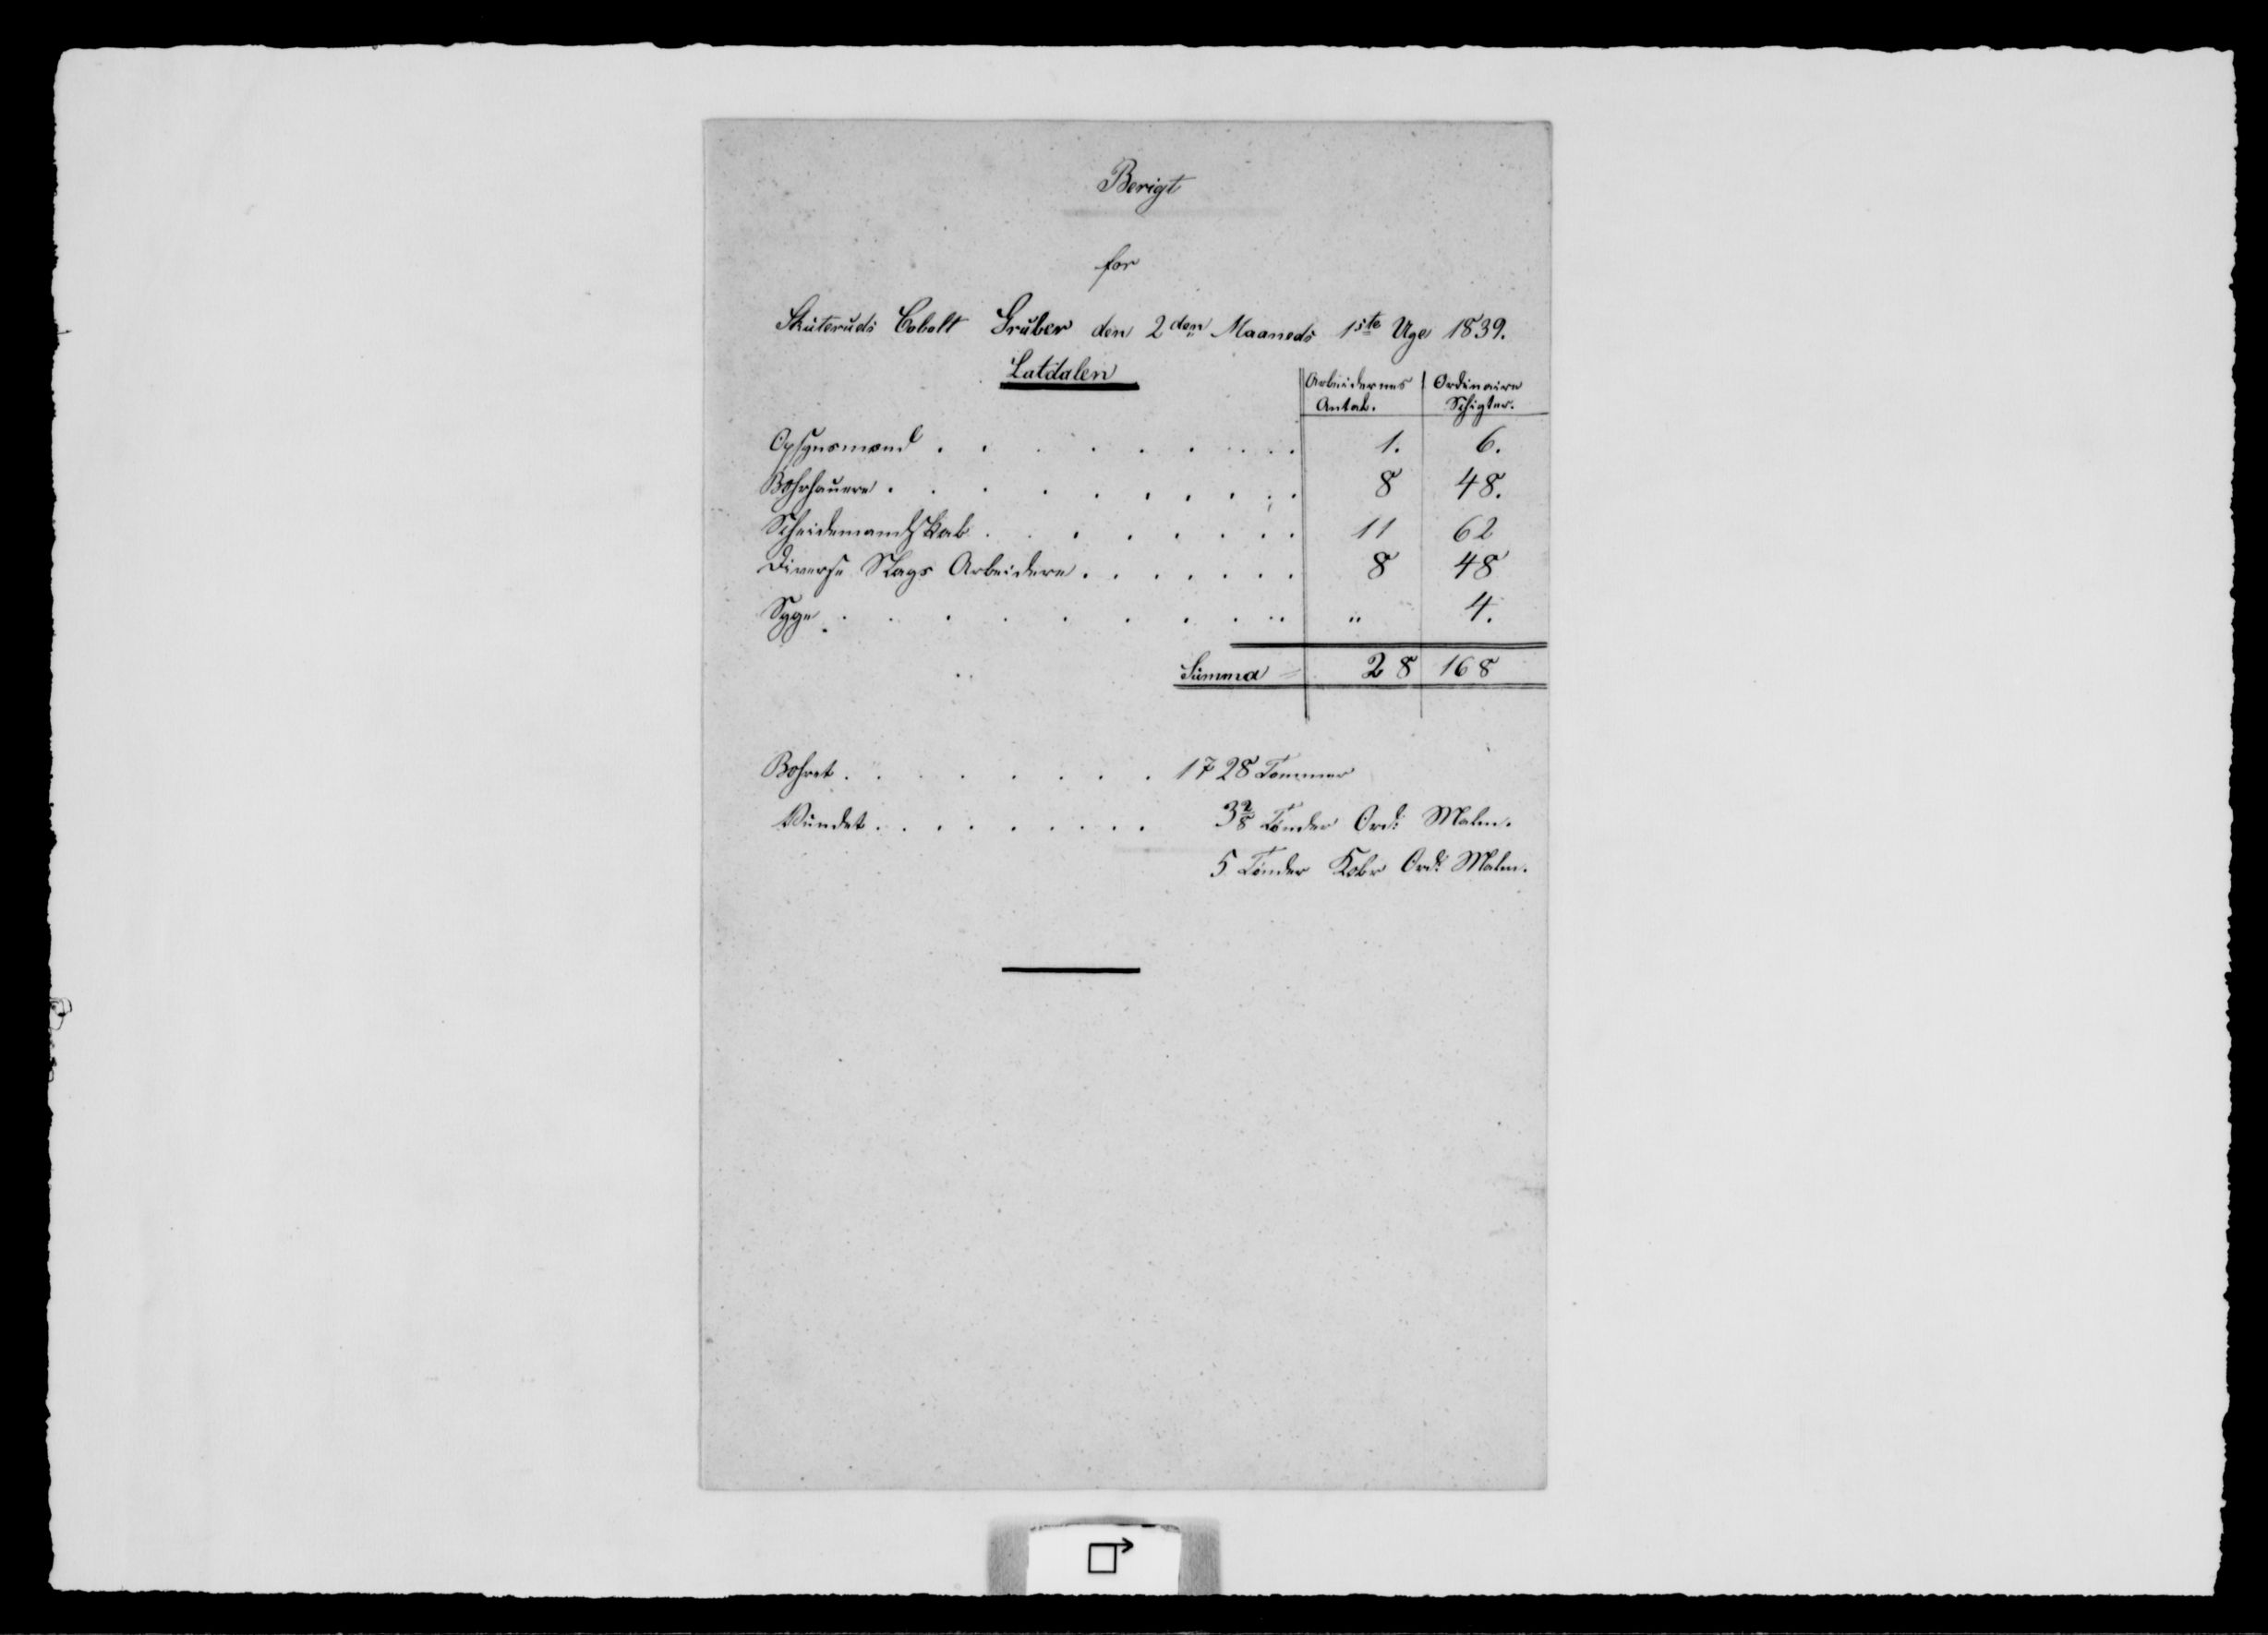 Berigt
for
Skuteruds Cobolt Gruber den 2den Maaneds 1ste Uge 1839.
Latdalen
Arbeidernes Antal. Ordinaire Schigter.
Opsynsmand . . . . . . . . . 1. 6.
Bohrhauere . . . . . . . . . 8 48.
Scheidemandskab . . . . . . . 11 62
Diverse Slags Arbeidere . . . . . . . 8 48
Syge . . . . . . . . . " 4.
Summa = 28 168
Bohret . . . . . . . . 1728 Tommer
Vundet . . . . . . . . 3 2/8 Tönder Ord: Malm.
5 Tönder Ord: Malm.